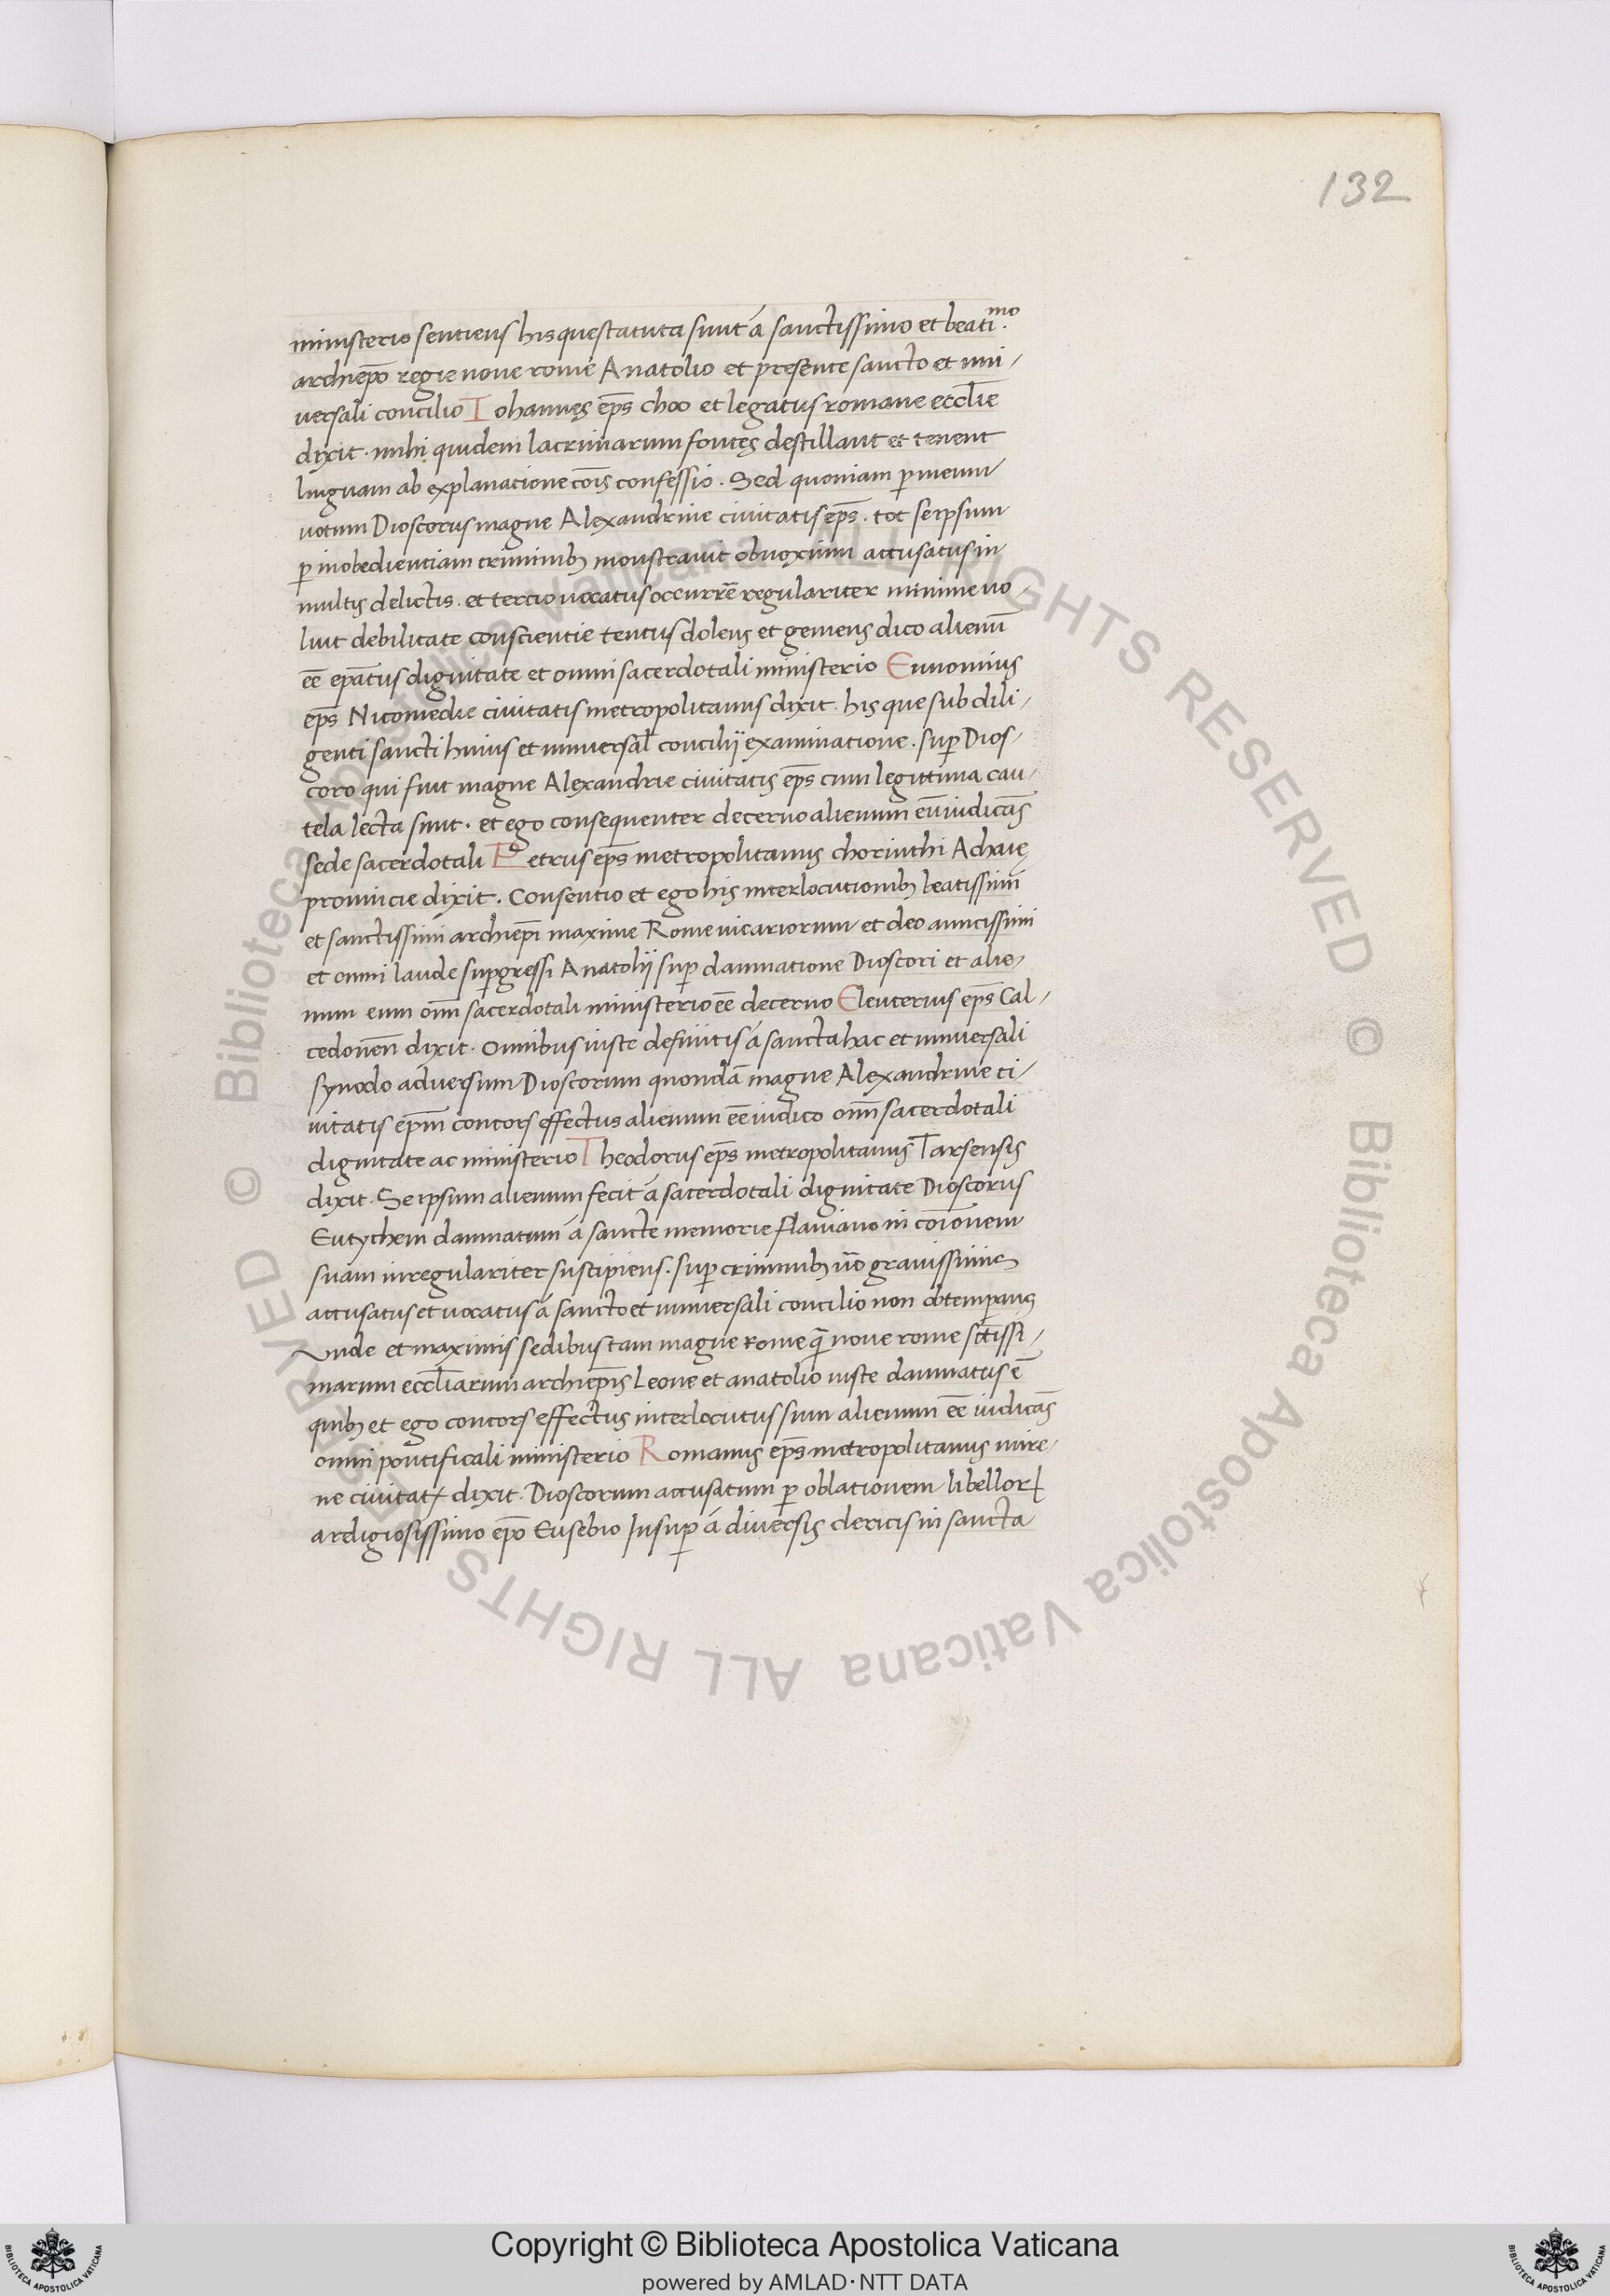 132
ministerio sentiens his que statuta sunt á sanctissimo et beatiᵐᵒ.
archiepō regie nove rome Anatolio et presente sancto et uni-
versali concilio Iohannes ep̄s choo et legatus romane eccl̄ie
dixit · mihi quidem lacrimarum fontes destillant et tenent
linguam ab explanatione cōis confessio . Sed quoniam ꝑ meum
uotum Dioscorus magne Alexandrine civitatis ep̄s . tot seipsum
ꝑ inobedientiam criminibꝫ monstravit obnoxium accusatus in
multis delictis . et tercio uocatus occurrē regulariter minime uo-
luit debilitate conscientie tentus dolens et gemens dico alienū
ēē ep̄atus dignitate et omni sacerdotali ministerio Eunomius
ep̄s Nicomedie civitatis metropolitanus dixit . his que sub dili-
genti sancti huius et universal̄ concilij examinatione . suꝑ Dios-
coro qui fuit magne Alexandrie civitatis ep̄s cum legittima cau-
tela lecta sunt . et ego consequenter decerno alienum eū iudicās
sede sacerdotali Petrus ep̄s metropolitanus chorinthi Achaie
provincie dixit . Consentio et ego his interlocutionibꝫ beatissimi
et sanctissimi archiep̄i maxime Rome vicariorum et deo amicissimi
et omni laude suꝑgressi Anatolij suꝑ damnatione Dioscori et alie-
num eum om̄i sacerdotali ministerio ēē decerno Eleuterius ep̄s Cal-
cedonen̄ dixit . Omnibus iuste definitis á sancta hac et universali
synodo adversum Dioscorum quondā magne Alexandrine ci-
vitatis ep̄m concors effectus alienum ēē iudico om̄i sacerdotali
dignitate ac ministerio Theodorus ep̄s metropolitanus Tarsensis
dixit . Se ipsum alienum fecit á sacerdotali dignitate Dioscorus
Eutychem damnatum á sancte memorie flaviano in cōionem
suam inregulariter suscipiens . suꝑ criminibꝫ ūo gravissime
accusatus et uocatus á sancto et universali concilio non obtemꝑans
Unde et maximis sedibus tam magne rome q̄ nove rome sc̄tissi-
marum eccl̄iarum archiep̄is Leone et anatolio iuste damnatus ē
quibꝫ et ego concors effectus interlocutus sum alienum ēē iudicās
omni pontificali ministerio Romanus ep̄s metropolitanus mire-
ne civitatꝭ dixit . Dioscorum accusatum ꝑ oblationem libelloꝝ
a religiosissimo epō Eusebio Insuꝑ á diversis clericis in sancta
© Biblioteca Apostolica Vaticana ALL RIGHTS RESERVED © Biblioteca Apostolica Vaticana ALL RIGHTS RESERVED
Copyright © Biblioteca Apostolica Vaticana
powered by AMLAD·NTT DATA
BIBLIOTECA APOSTOLICA VATICANA
BIBLIOTECA APOSTOLICA VATICANA